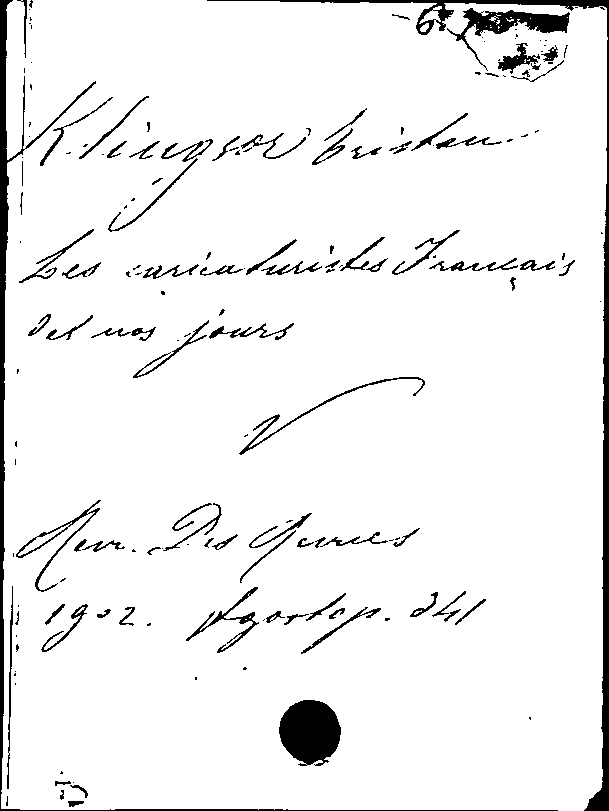 6.
Klingsor Tristan
Les caricaturistes Français
det nos jours
Revv. Des Revues
1902. Agosto p. 341